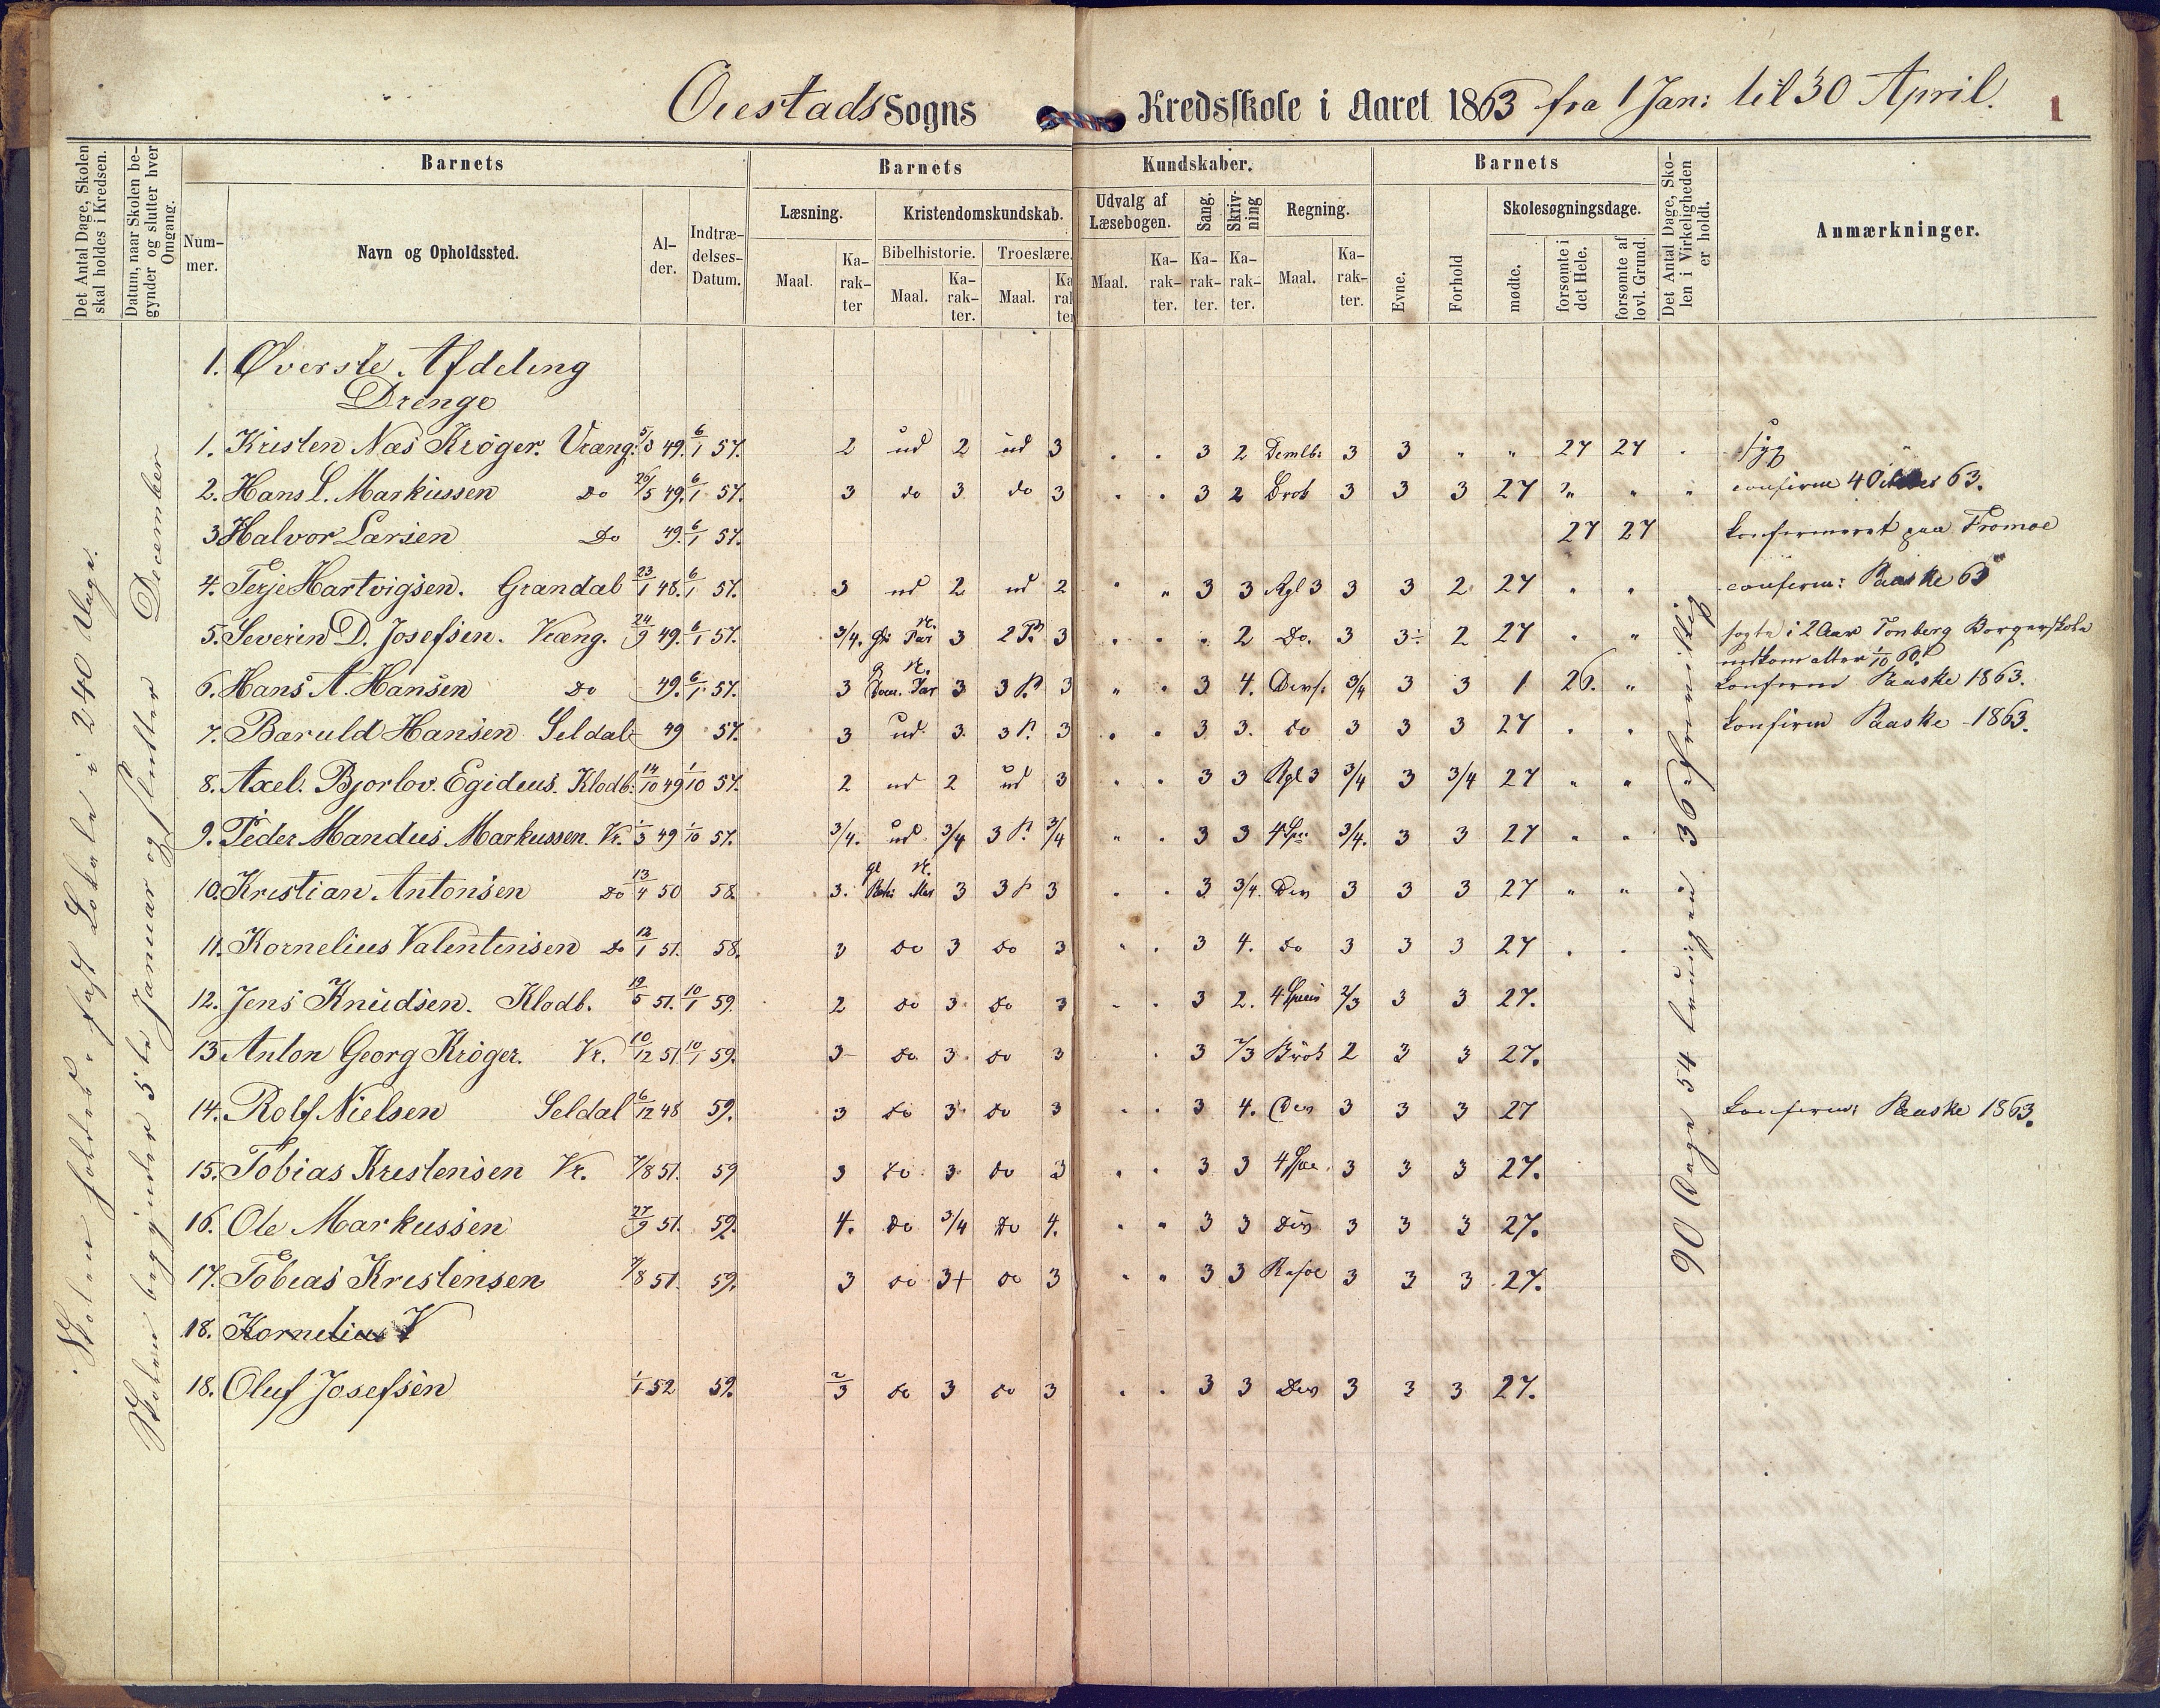 Øiestads Sogns Kredsskole i Aaret 1863 fra 1 Jan: til 30 April.
1
Det Antal Dage, Skolen skal holdes i Kredsen.
Datum, naar Skolen begynder og slutter hver Omgang.
Barnets
Barnets
Kundskaber.
Barnets
Det Antal Dage, Skolen i Virkeligheden er holdt.
Anmærkninger.
Num-mer.
Navn og Opholdssted.
Al-der.
Indtræ-delses-Datum.
Læsning.
Kristendomskundskab.
Udvalg af Læsebogen.
Sang.
Skriv-ning
Regning.
Skolesøgningsdage.
Bibelhistorie.
Troeslære.
Maal.
Ka-rak-ter
Maal.
Ka-rak-ter.
Maal.
Maal.
Ka-rak-ter.
Ka-rak-ter.
Ka-rak-ter.
Maal.
Ka-rak-ter.
Evne.
Forhold
mødte.
forsømte i det Hele.
forsømte af lovl. Grund.
Skolen holdes i fast Lokale i 240 Dage.
Skolen begynder 5te Januar og slutter December
1. Øverste Afdeling
Drenge
1. Kristen Næs Krøger. Vræng. 5/3 49. 6/1 57. 2 ud 2 ud 3 3 2 3 3 " " 27 27 syg
2. Hans L. Markussen Do 26/5 49. 6/1 57. 3 do 3 do 3 3 2 Brøk 3 3 3 27 " " confirm 4 63.
3 Halvor Larsen Do 49. 6/1 57. 27 27 konfirmeret paa Tromøe
4. Terje Hartvigsen. Grandal 23/1 48. 6/1 57. 3 ud 2 ud 2 " " 3 3 Rgl 3 3 3 2 27 " " confirm: Paaske 63
5. Severin D. Josefsen. Vræng. 24/9 49. 6/1 57. 3/4. 3 2 P. 3 2 Do. 3 3÷ 2 27 " " søgte i 2 Aar Tønberg Borgerskole
indkom atter 1/10 60.
6. Hans A. Hansen Do 49. 6/1 57. 3 3 3 P. 3 " " 3 4. 3/4 3 3 1 26. " konfirm Paaske 1863.
7. Baruld Hansen Seldal 49 57. 3 ud. 3. 3 P. 3 3 3. do 3 3 3 27 konfirm Paaske 1863.
8. Axel. Bjorlov. Egidius. Klodb. 14/10 49 1/10 57. 2 ud 2 ud 3 3 3 Rgl 3 3/4 3 3/4 27 " "
9. Peder Mandus Markussen. Vr. 1/3 49 1/10 57. 3/4. ud 3/4 3 P. 3/4 " 3 3 3/4. 3 3 27 " "
10. Kristian Antonsen Do 13/4 50 58. 3. 3 3 P 3 3 3/4. Div 3 3 3 27 " "
11. Kornelius Valentinsen Do 12/1 51. 58. 3 do 3 do 3 " 3 4. do 3 3 3 27
12. Jens Knudsen. Klodb. 19/5 51. 10/1 59. 2 do 3 do 3 3 2. 2/3 3 3 27.
13 Anton Georg Krøger. Vr. 10/12 51 10/1 59. 3 do 3. do 3 3 2/3 Brøk 2 3 3 27.
14. Rolf Nielsen Seldal 6/12 48 59. 3 do 3. do 3 3 4. Div 3 3 3 27 konfirm: Paaske 1863.
15. Tobias Kristensen Vr. 7/8 51. 59 3 do 3. do 3 3 3 3 3 3 27.
16. Ole Markussen 27/9 51. 59. 4. do 3/4 do 4. 3 3 Div 3 3 3 27.
17. Tobias Kristensen 7/8 51. 59. 3 do 3+ do 3 3 3 3 3 3 27.
18. Kornelius V
18. Oluf Josefsen 1/1 52 59. 2/3 do 3 do 3 3 3 Div 3 3 3 27.